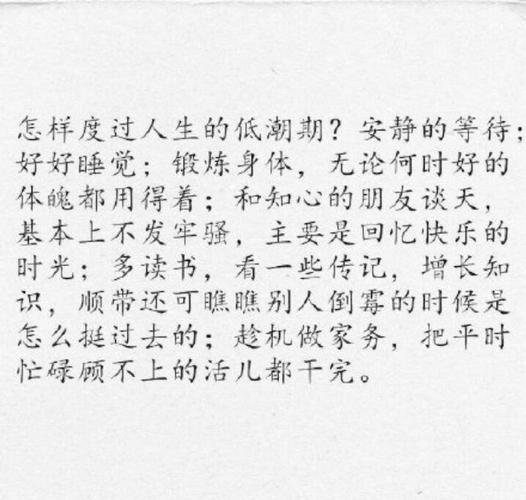 怎样度过人生的低潮期？安静的等待；
好好睡觉；锻炼身体，无论何时好的
体魄都用得着；和知心的朋友谈天，
基本上不发牢骚，主要是回忆快乐的
时光；多读书，看一些传记，增长知
识，顺带还可瞧瞧别人倒霉的时候是
怎么挺过去的；趁机做家务，把平时
忙碌顾不上的活儿都干完。